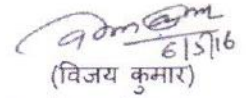 6/5/16
(विजय कुमार)